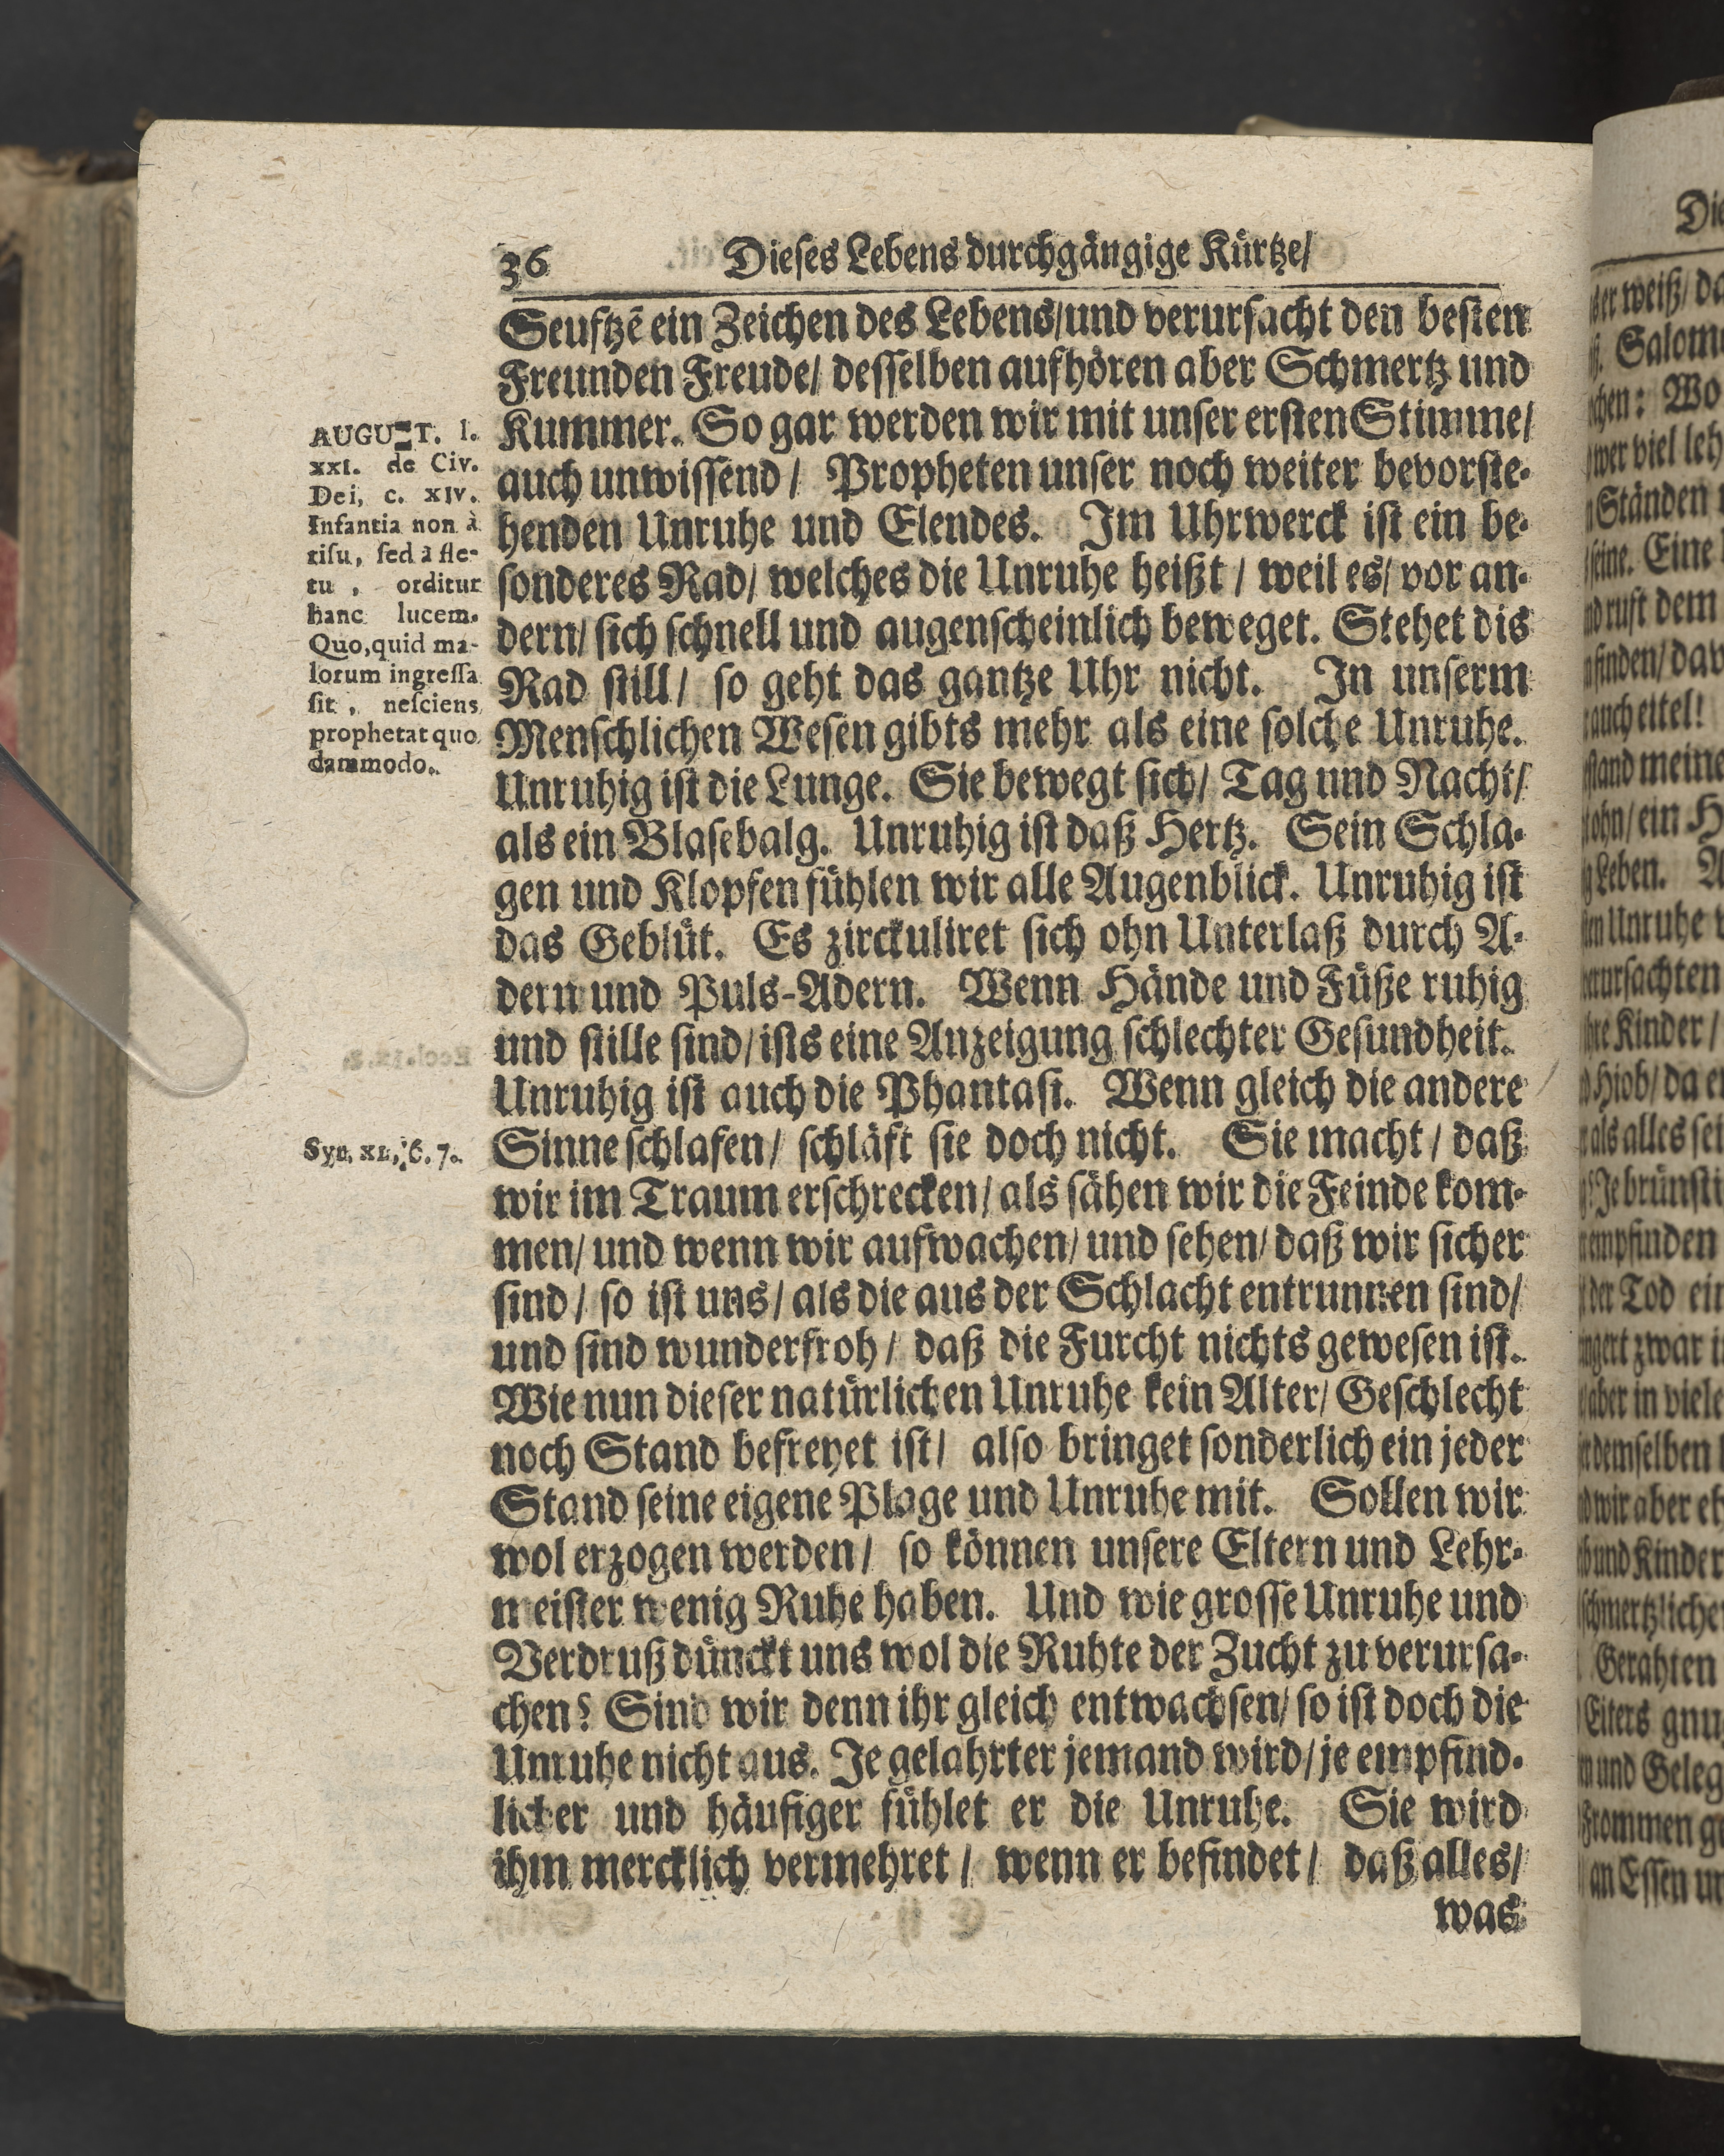 36 Dieses Lebens durchgängige Kürtze/
Seuftzē ein Zeichen des Lebens/und verursacht den besten
Freunden Freude/ desselben aufhören aber Schmertz und
Kummer. So gar werden wir mit unser ersten Stimme/
auch unwissend/ Propheten unser noch weiter bevorste-
henden Unruhe und Elendes. Im Uhrwerck ist ein be-
sonderes Rad/ welches die Unruhe heißt/ weil es/ vor an-
dern/ sich schnell und augenscheinlich beweget. Stehet dis
Rad still/ so geht das gantze Uhr nicht. In unserm
Menschlichen Wesen gibts mehr als eine solche Unruhe.
Unruhig ist die Lunge. Sie bewegt sich/ Tag und Nacht/
als ein Blasebalg. Unruhig ist daß Hertz. Sein Schla-
gen und Klopfen fühlen wir alle Augenblick. Unruhig ist
das Geblüt. Es zirckuliret sich ohn Unterlaß durch A-
dern und Puls-Adern. Wenn Hände und Füße ruhig
und stille sind/ ists eine Anzeigung schlechter Gesundheit.
Unruhig ist auch die Phantasi. Wenn gleich die andere
Sinne schlafen/ schläft sie doch nicht. Sie macht/ daß
wir im Traum erschrecken/ als sähen wir die Feinde kom-
men/ und wenn wir aufwachen/ und sehen/ daß wir sicher
sind/ so ist uns/ als die aus der Schlacht entrunnen sind/
und sind wunderfroh/ daß die Furcht nichts gewesen ist.
Wie nun dieser natürlichen Unruhe kein Alter/ Geschlecht
noch Stand befreyet ist/ also bringet sonderlich ein jeder
Stand seine eigene Plage und Unruhe mit. Sollen wir
wol erzogen werden/ so können unsere Eltern und Lehr-
meister wenig Ruhe haben. Und wie grosse Unruhe und
Verdruß dünckt uns wol die Ruhte der Zucht zu verursa-
chen? Sind wir denn ihr gleich entwachsen/ so ist doch die
Unruhe nicht aus. Je gelahrter jemand wird/ je empfind-
licher und häufiger fühlet er die Unruhe. Sie wird
ihm mercklich vermehret/ wenn er befindet/ daß alles/
was
AUGUST. l.
xxi. de Civ.
Dei, c. xiv.
Infantia non à
risu, sed à fle-
tu, orditur
hanc lucem.
Quo, quid ma-
lorum ingressa
sit, nesciens
prophetat quo
dammodo.
Syr. xl, 6. 7.
Die
ser weiß/ da
Salomo
chen: Wo
wer viel leh
Ständen
seine. Eine
ruft dem
finden/ dav
auch eitel!
stand meine
ohn/ ein H
Leben. A
Unruhe
verursachten
Kinder/
Hiob/ da e
als alles sei
Je brünsti
empfinden
der Tod ein
zwar i
aber in viele
demselben
wir aber eh
und Kinder
schmertzliche
Gerahten
Eiters gnu
und Geleg
Frommen g
an Essen u